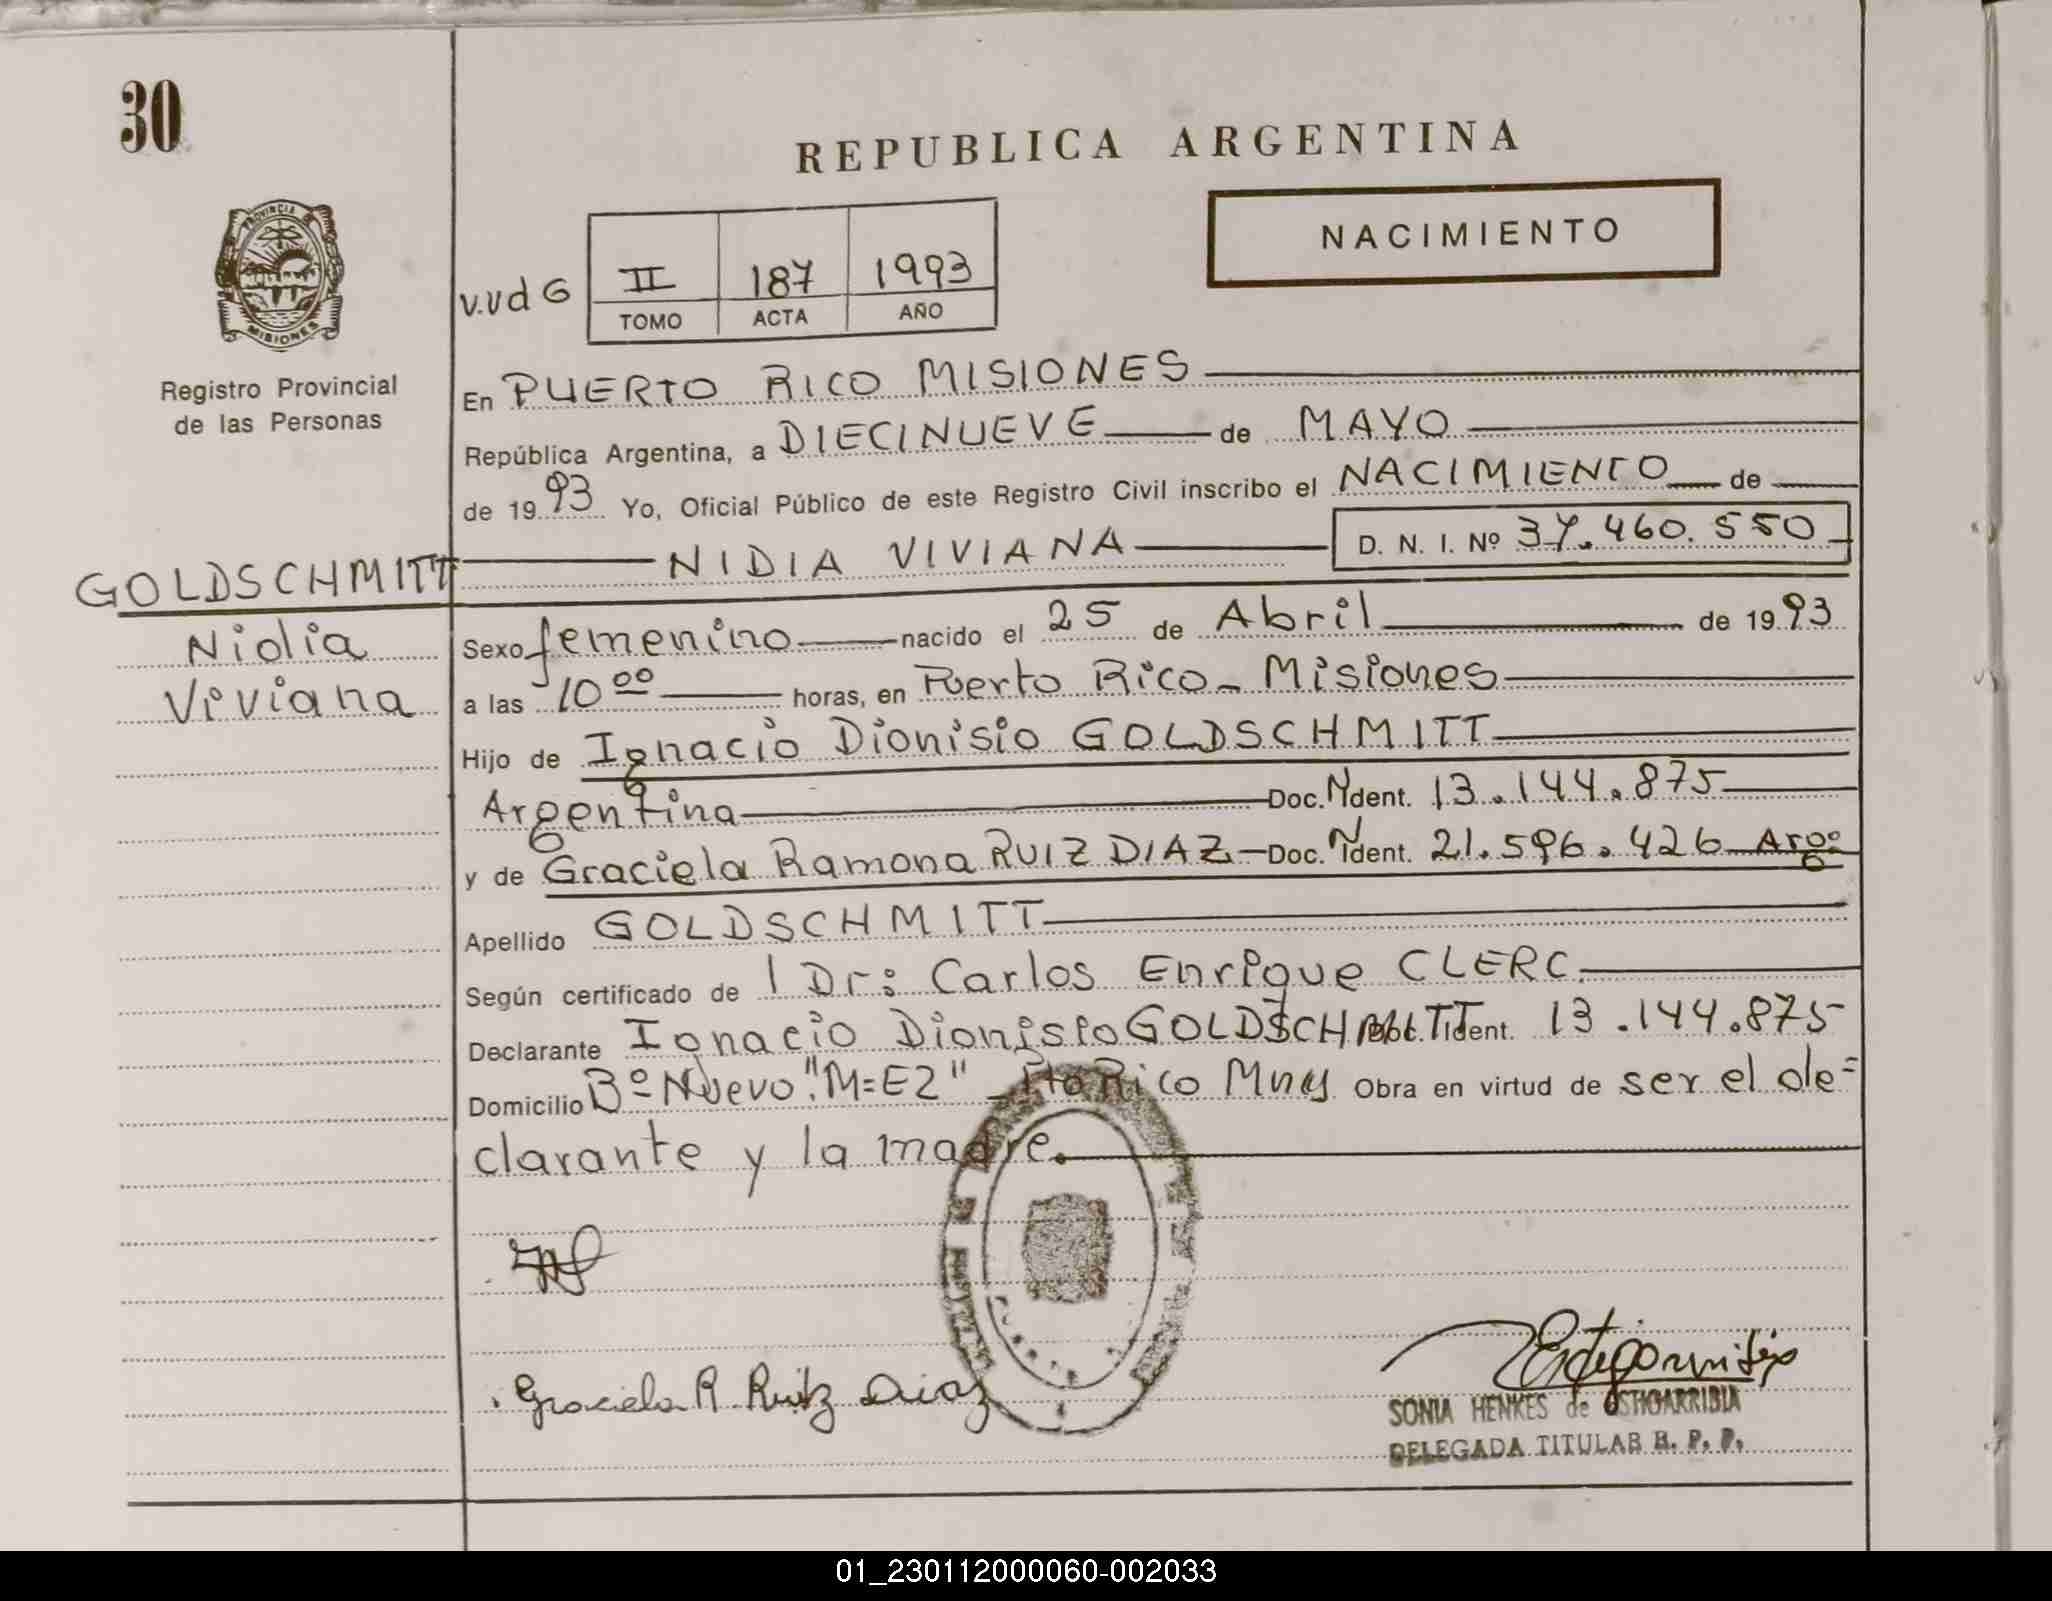 30
REPUBLICA ARGENTINA
NACIMIENTO
PROVINCIA DE
MISIONES
Registro Provincial
de las Personas
v.vd G
II 187 1993
TOMO ACTA AÑO
En PUERTO RICO MISIONES
República Argentina, a DIECINUEVE de MAYO
de 1993 Yo, Oficial Público de este Registro Civil inscribo el NACIMIENTO de
GOLDSCHMITT NIDIA VIVIANA D. N. I. Nº 37.460.550
Nidia
Viviana
Sexo femenino nacido el 25 de Abril de 1993
a las 10 00 horas, en Puerto Rico - Misiones
Hijo de Ignacio Dionisio GOLDSCHMITT
Argentina Doc. Ident. 13.144.875
y de Graciela Ramona RUIZ DIAZ Doc. Ident. 21.596.426 Argº
Apellido GOLDSCHMITT
Según certificado de l Dr: Carlos Enrique CLERC.
Declarante Ignacio Dionisio GOLDSCHMITT Doc. Ident. 13.144.875
Domicilio Bº Nuevo "M=E2" Pto Rico Mnes Obra en virtud de ser el de=
clarante y la madre.
Graciela R. Ruiz Diaz
SONIA HENKES de OSTIGARRIBIA
DELEGADA TITULAR R. P. P.
01_230112000060-002033